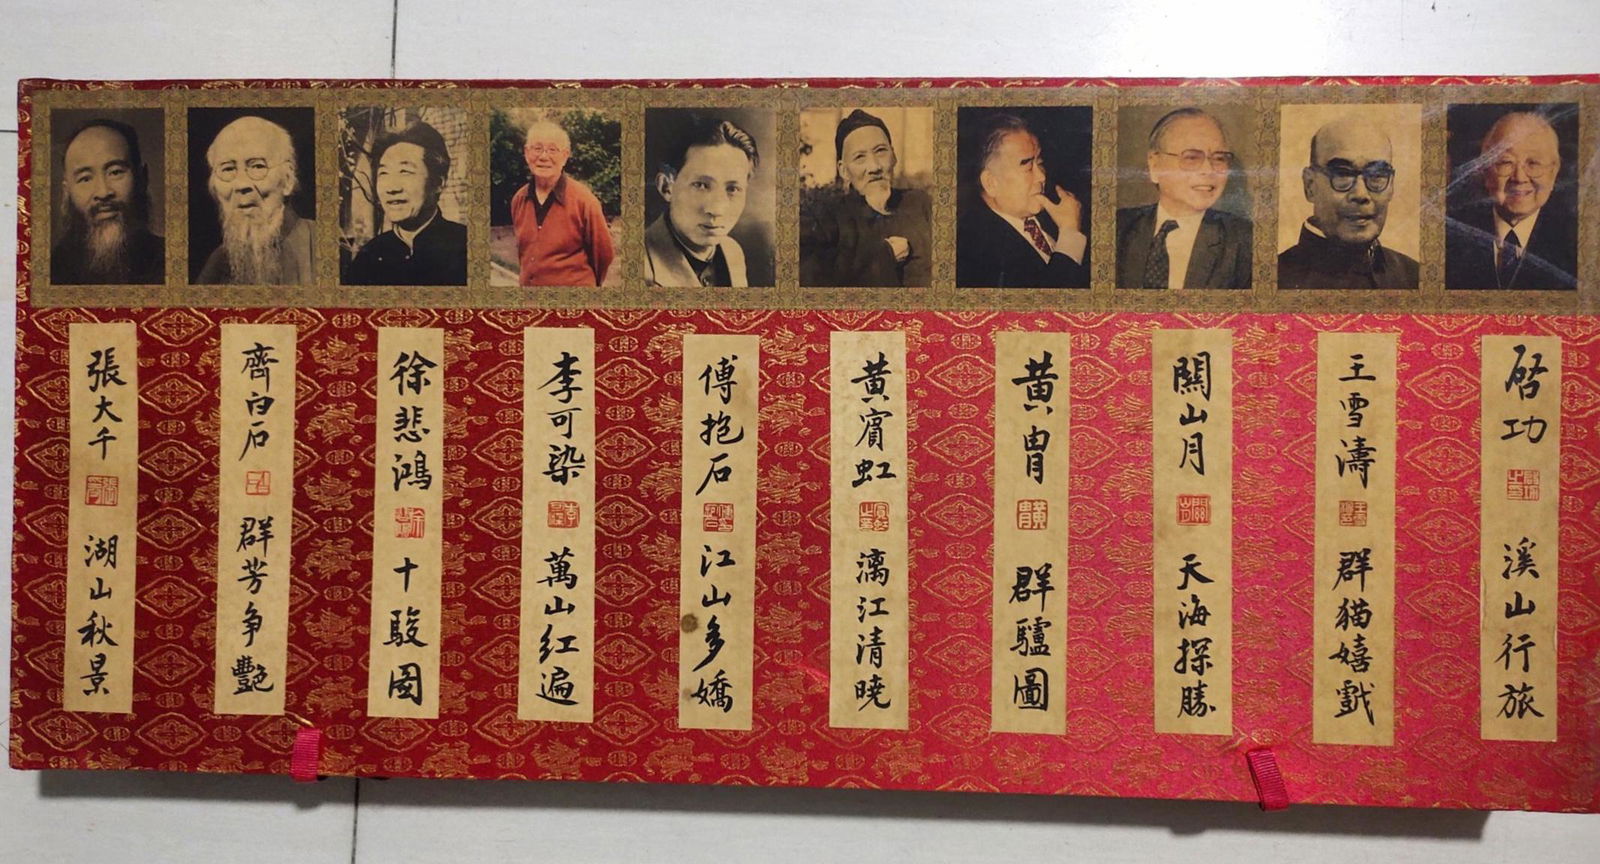 張大千 湖山秋景
齊白石 群芳争艷
徐悲鴻 十駿圖
李可染 萬山红遍
傅抱石 江山多嬌
黄賓虹 漓江清曉
黄胄 群驢圖
關山月 天海探勝
王雪濤 群猫嬉戲
啓功 溪山行旅